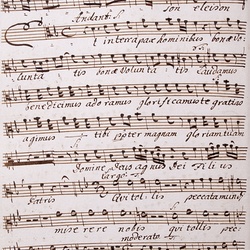 son eleison
Andante
Et in terra pax hominibus bonæ vo
lunta tis bonæ volunta tis laudamus
benedicimus adoramus glorificamus te gratias
agimus tibi propter magnam gloriam tuam
Domine Deus agnus Dei Filius
largo
Patris Qui tollis peccata mundi
miserere nobis qui tollis pec
moderato